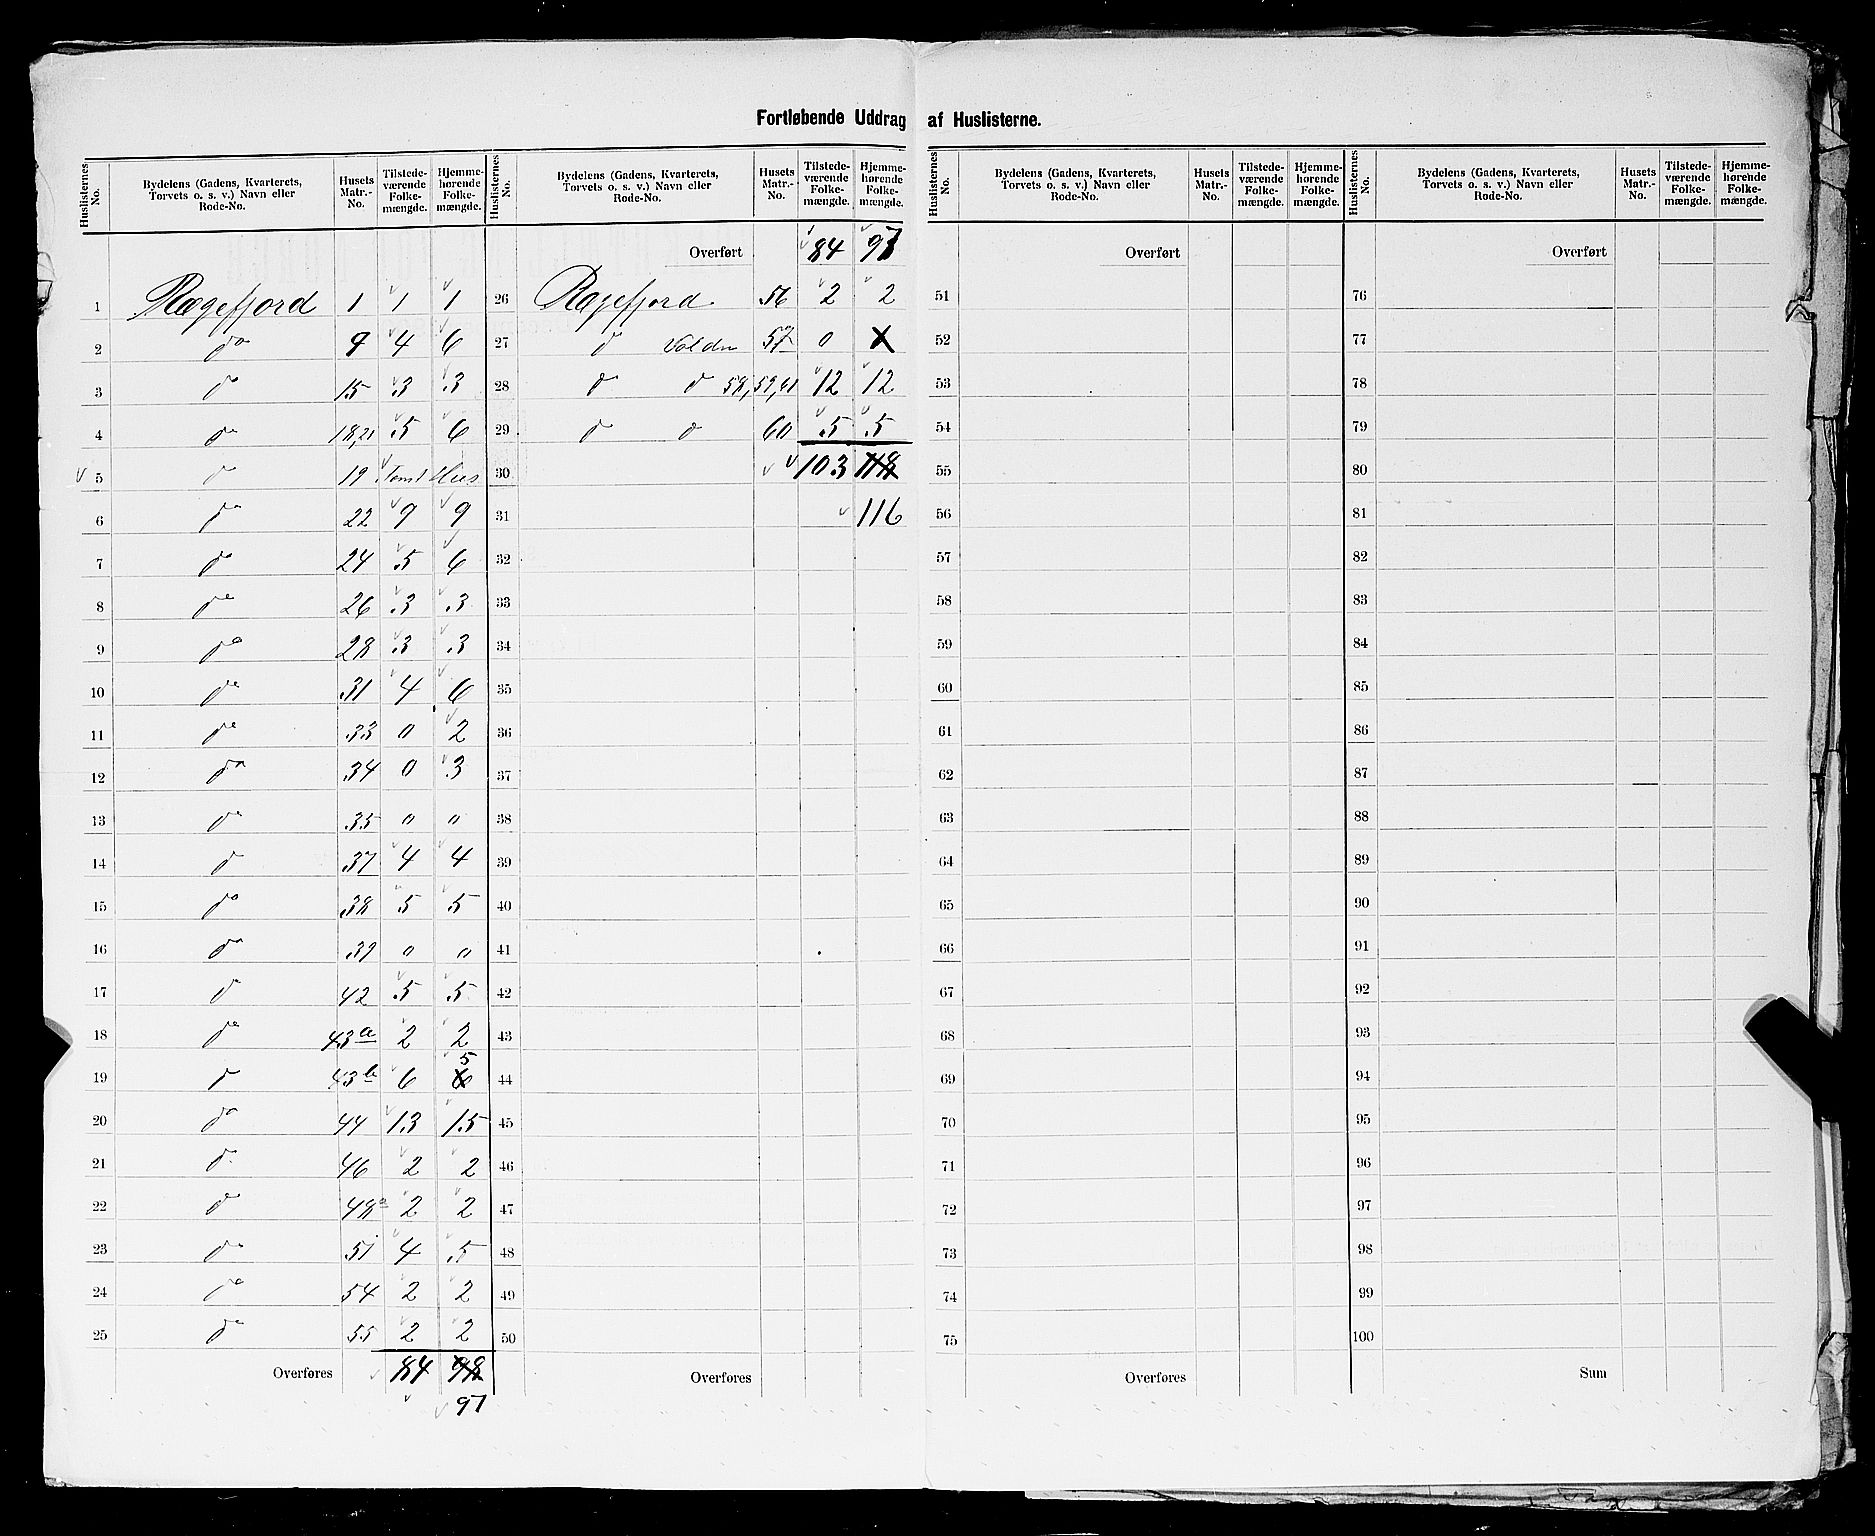 Fortløbende Uddrag af Huslisterne.
Huslisternes No. | Bydelens (Gadens, Kvarterets, Torvets o. s. v.) Navn eller Rode-No. | Husets Matr.-No. | Tilstedeværende Folkemængde. | Hjemmehørende Folkemængde.
1 Rægefjord 1 1 1
2 do 9 4 6
3 do 15 3 3
4 do 18,21 5 6
5 do 19 Tomt Hus
6 do 22 9 9
7 do 24 5 6
8 do 26 3 3
9 do 28 3 3
10 do 31 4 6
11 do 33 0 2
12 do 34 0 3
13 do 35 0 0
14 do 37 4 4
15 do 38 5 5
16 do 39 0 0
17 do 42 5 5
18 do 43a 2 2
19 do 43b 6 6 5
20 do 44 13 15
21 do 46 2 2
22 do 48a 2 2
23 do 51 4 5
24 do 54 2 2
25 do 55 2 2
Overføres 84 98
97
Huslisternes No. | Bydelens (Gadens, Kvarterets, Torvets o. s. v.) Navn eller Rode-No. | Husets Matr.-No. | Tilstedeværende Folkemængde. | Hjemmehørende Folkemængde.
Overført 84 97
26 Rægefjord 56 2 2
27 do 57 0
28 do do 58, 59, 61 12 12
29 do do 60 5 5
30 103 118
31 116
32
33
34
35
36
37
38
39
40
41
42
43
44
45
46
47
48
49
50
Overføres
Huslisternes No. | Bydelens (Gadens, Kvarterets, Torvets o. s. v.) Navn eller Rode-No. | Husets Matr.-No. | Tilstedeværende Folkemængde. | Hjemmehørende Folkemængde.
Overført
51
52
53
54
55
56
57
58
59
60
61
62
63
64
65
66
67
68
69
70
71
72
73
74
75
Overføres
Huslisternes No. | Bydelens (Gadens, Kvarterets, Torvets o. s. v.) Navn eller Rode-No. | Husets Matr.-No. | Tilstedeværende Folkemængde. | Hjemmehørende Folkemængde.
Overført
76
77
78
79
80
81
82
83
84
85
86
87
88
89
90
91
92
93
94
95
96
97
98
99
100
Sum